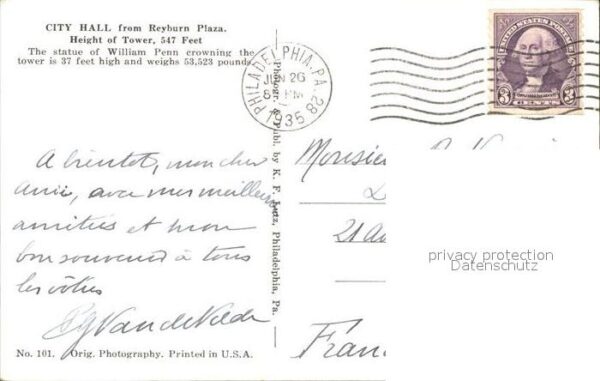 CITY HALL from Reyburn Plaza.
Height of Tower, 547 Feet
The statue of William Penn crowning the
tower is 37 feet high and weighs 53,523 pounds.
PHILADELPHIA, PA. 28
JUN 26
8 PM
1935
UNITED STATES POSTAGE
3 CENTS 3
A bientot, mon cher
Ami, avec mes meilleures
amitiés et mon
bon souvenir à tous
les vôtres
Photogr. & Publ. by K. F. Lutz, Philadelphia, Pa.
Monsieur
21 Av
France
privacy protection
Datenschutz
No. 101. Orig. Photography. Printed in U.S.A.